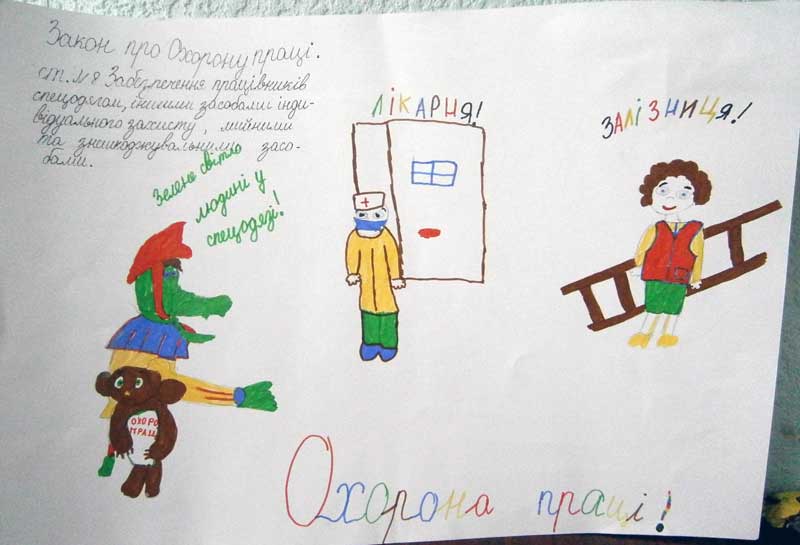 Закон про Охорону праці.
ст. №8 Забезпечення працівників
спецодягом, іншими засобами інди-
відуального захисту, мийними
та знешкоджувальними засо-
бами.
Зелене світло
людині у
спецодязі!
ЛІКАРНЯ!
ЗАЛІЗНИЦЯ!
ОХОРО
ПРАЦ
Охорона праці!